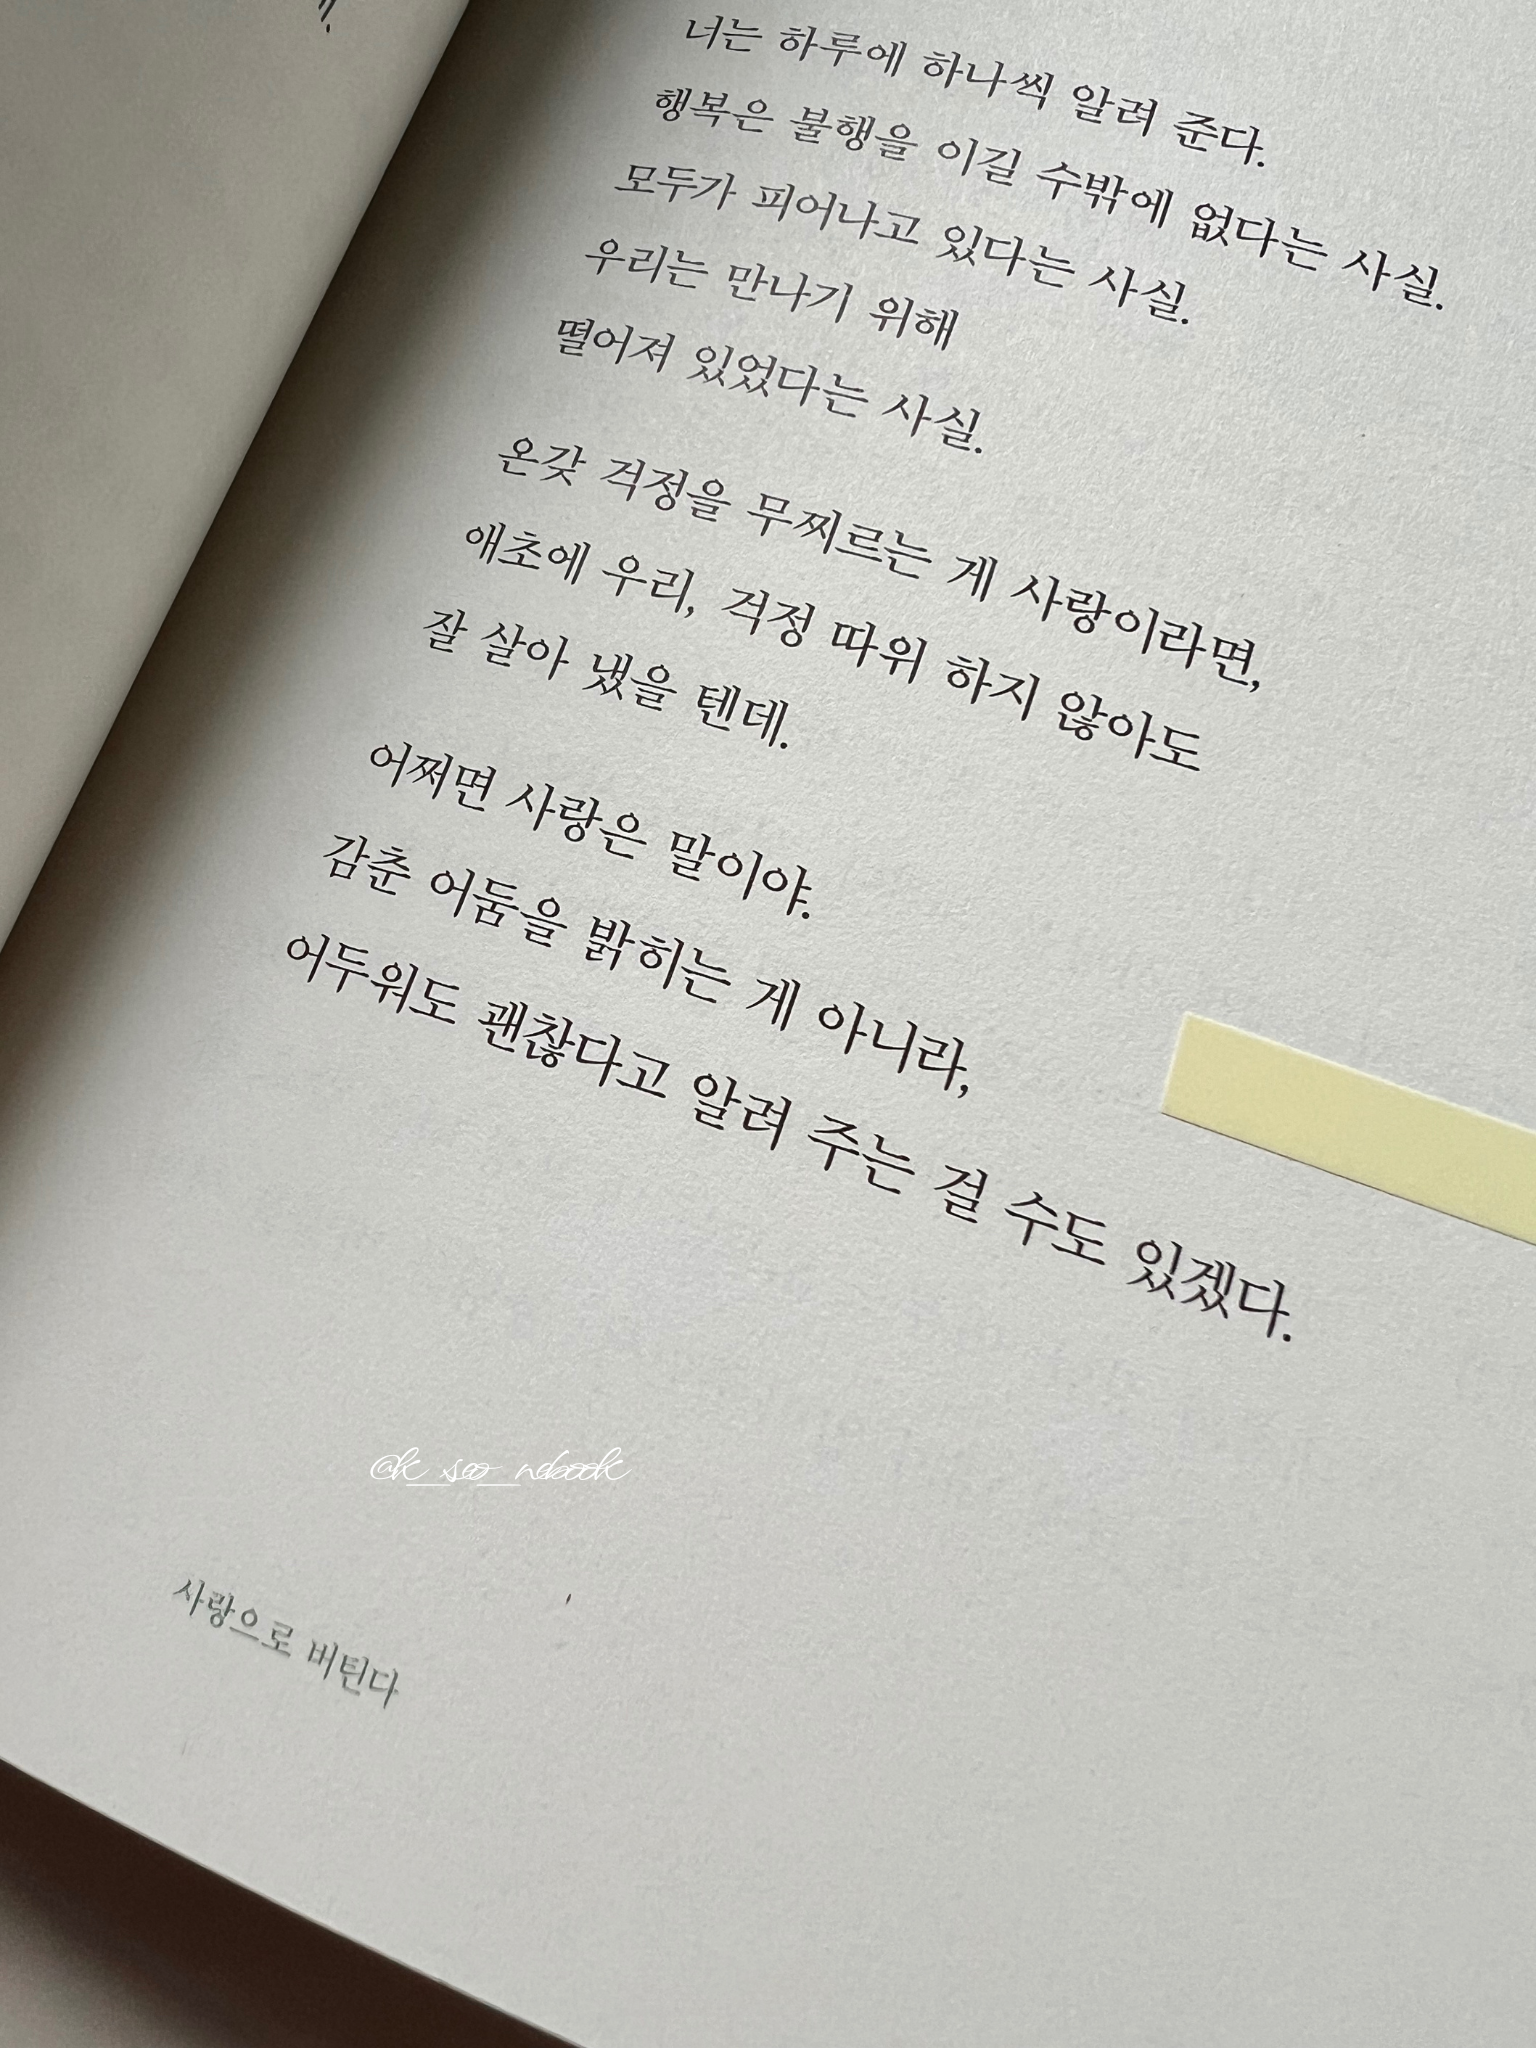 너는 하루에 하나씩 알려 준다.
행복은 불행을 이길 수밖에 없다는 사실.
모두가 피어나고 있다는 사실.
우리는 만나기 위해
떨어져 있었다는 사실.
온갖 걱정을 무찌르는 게 사랑이라면,
애초에 우리, 걱정 따위 하지 않아도
잘 살아 냈을 텐데.
어쩌면 사랑은 말이야.
감춘 어둠을 밝히는 게 아니라,
어두워도 괜찮다고 알려 주는 걸 수도 있겠다.
@k__soo__nebook
사랑으로 버틴다